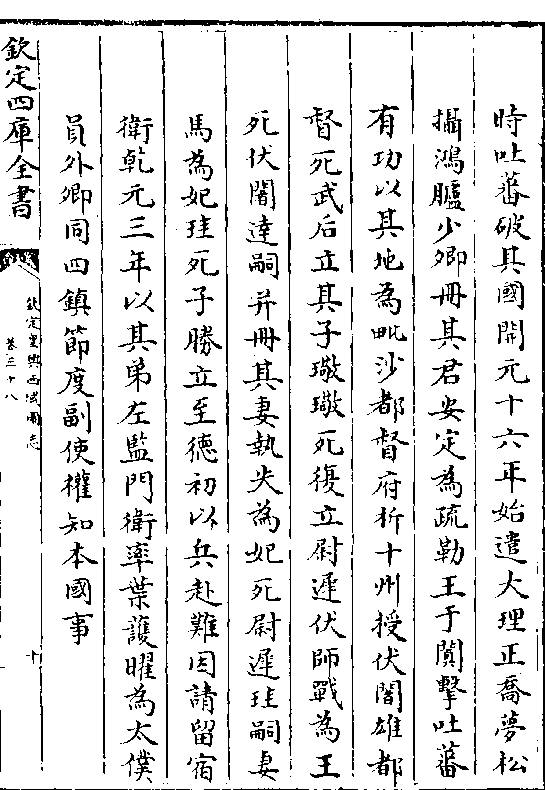 時吐蕃破其國開元十六年始遣大理正喬夢松
攝鴻臚少卿冊其君安定為疏勒王于闐擊吐蕃
有功以其地為毗沙都督府析十州授伏闍雄都
督死武后立其子璥璥死復立尉遲伏師戰為王
死伏闍達嗣并冊其妻執失為妃死尉遲珪嗣妻
馬為妃珪死子勝立至德初以兵赴難因請留宿
衛乾元三年以其弟左監門衛率葉護曜為太僕
員外卿同四鎮節度副使權知本國事
欽定四庫全書
欽定皇輿西域圖志
卷三十八
十